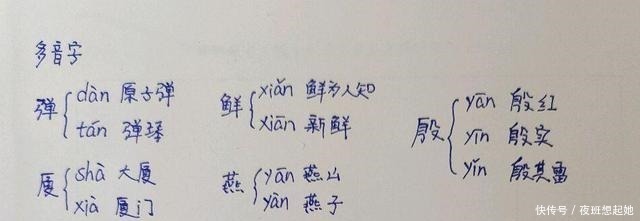 多音字
弹
dàn 原子弹
tán 弹琴
鲜
xiǎn 鲜为人知
xiān 新鲜
殷
yān 殷红
yīn 殷实
yǐn 殷其雷
厦
shà 大厦
xià 厦门
燕
yān 燕山
yàn 燕子
快传号／夜班想起她